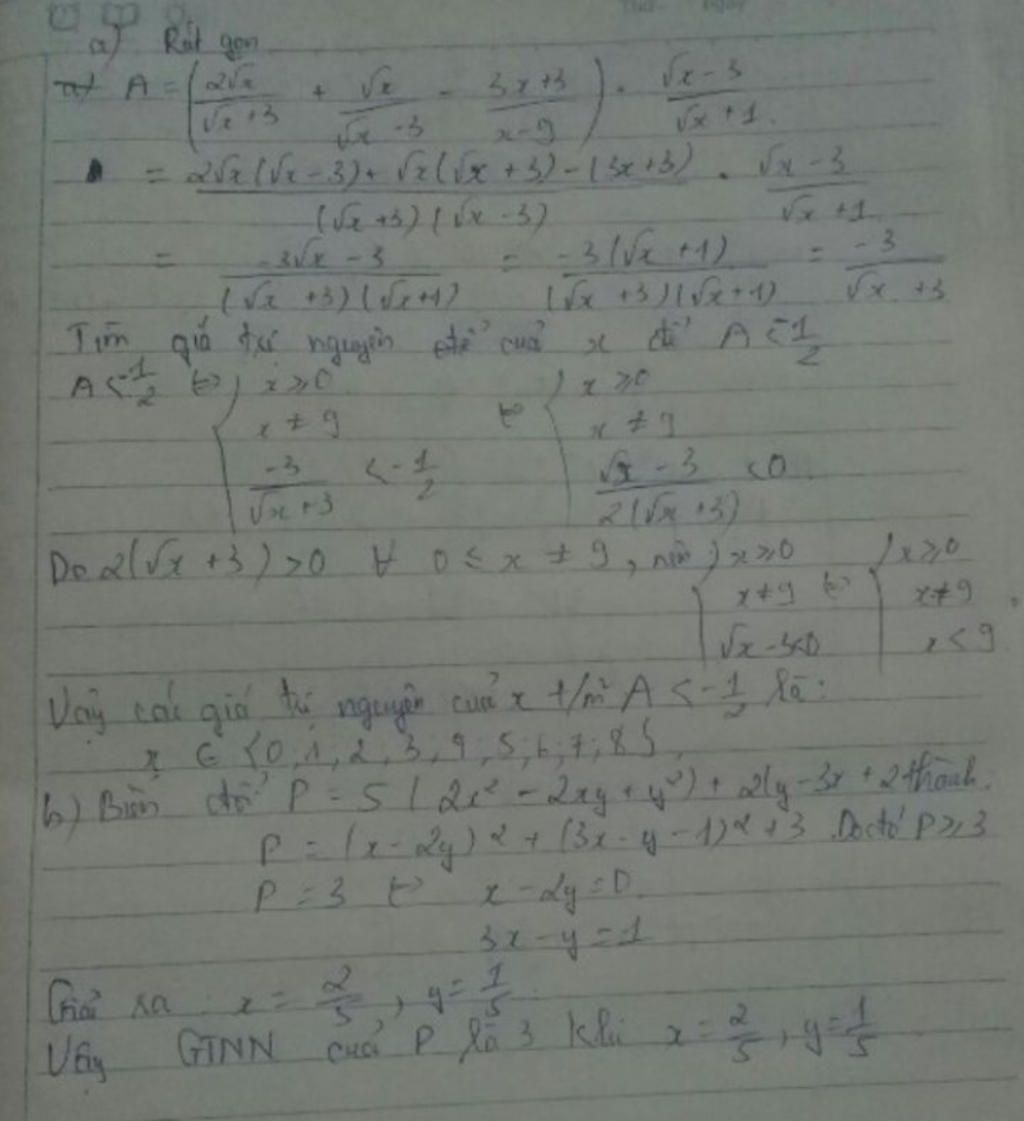 a) Rút gọn
a) A = (2√x/(√x + 3) + √x/(√x - 3) - (3x + 3)/(x - 9)) . (√x - 3)/(√x + 1).
= (2√x(√x - 3) + √x(√x + 3) - (3x + 3))/((√x + 3)(√x - 3)) . (√x - 3)/(√x + 1)
= (-3√x - 3)/((√x + 3)(√x + 1)) = -3(√x + 1)/((√x + 3)(√x + 1)) = -3/(√x + 3)
Tìm giá trị nguyên của x để A < -1/2
A < -1/2 ⇔ { x ≥ 0 ⇔ { x ≥ 0
x ≠ 9 x ≠ 9
-3/(√x + 3) < -1/2 (√x - 3)/(2(√x + 3)) < 0
Do 2(√x + 3) > 0 ∀ 0 ≤ x ≠ 9, nên { x ≥ 0 { x ≥ 0
x ≠ 9 ⇔ x ≠ 9
√x - 3 < 0 x < 9
Vậy các giá trị nguyên của x t/m A < -1/2 là:
x ∈ {0, 1, 2, 3, 4, 5; 6; 7; 8}
b) Biến đổi P = 5(2x² - 2xy + y²) + 2(y - 3x + 2 thành
P = (x - 2y)² + (3x - y - 1)² + 3. Do đó P ≥ 3
P = 3 ⇔ x - 2y = 0
3x - y = 1
Giải ra: x = 2/5, y = 1/5
Vậy GTNN của P là 3 khi x = 2/5, y = 1/5